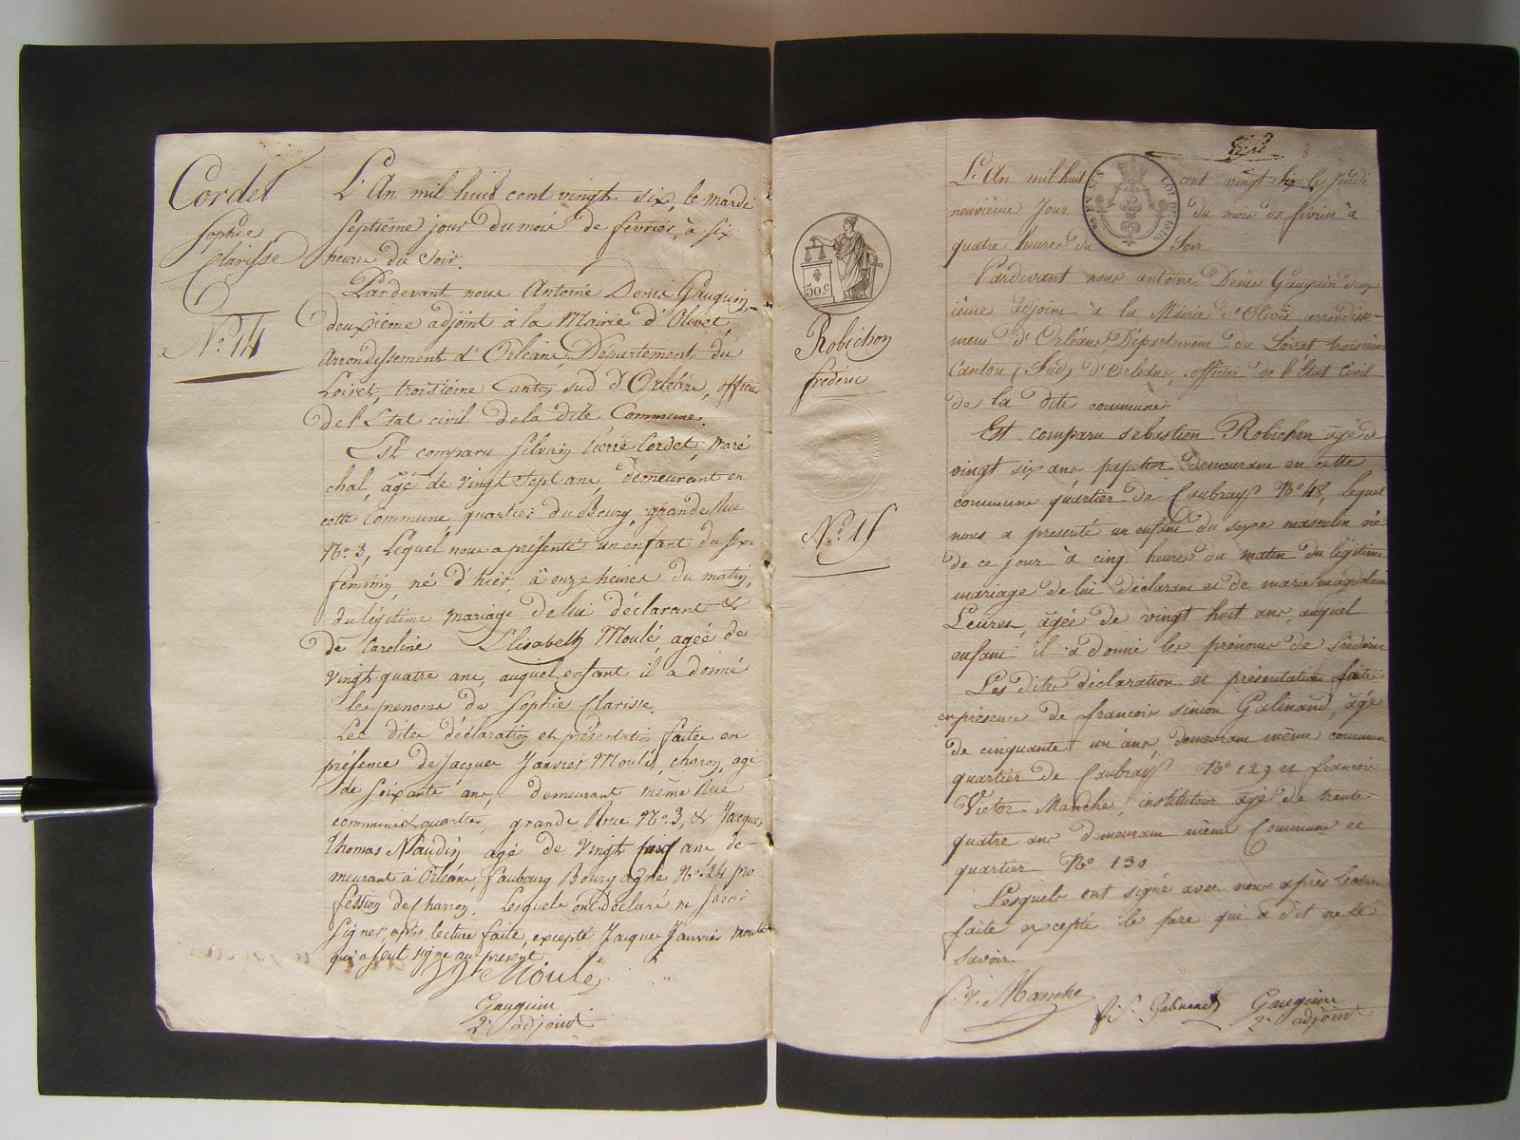 Cordet
Sophie
Clarisse
N.º 14
L'An mil huit cent vingt six, le mardi
septième jour du mois de fevrier, à six
heure du soir.
Pardevant nous Antoine Denis Gauguin,
deuxième adjoint à la Mairie d'Olivet,
arrondissement d'Orléans, Département du
Loiret, troisième Canton sud d'Orléans, officier
de l'Etat civil de la dite Commune.
Est comparu Silvain Pierre Cordet, maré
chal, âgé de vingt sept ans, demeurant en
cette Commune, quartier du Bourg, grande Rue
N.º 3, Lequel nous a présenté un enfant du sexe
féminin, né d'hier, à onze heures du matin,
du légitime mariage de lui déclarant &
de Caroline Elisabeth Moulé, agée de
vingt quatre ans, auquel enfant il a donné
les prenoms de Sophie Clarisse.
Les dites déclaration et présentation faites en
présence de Jacques Janvier Moulé, charon, agé
de soixante ans, demeurant même Rue
commune & quartier, grande Rue N.º 3, & Jacques
Thomas Naudin agé de vingt ans de-
meurant à Orléans, faubourg Bourgogne N.º 24 pro
fession de charron. Lesquels ont déclaré ne savoir
signer, après lecture faite, excepté Jacques Janvier Moulé
qui a seul signé au present.
Moulé
Gauguin
2.e adjoint
50 c
Robichon
frédéric
N.º 15
L'An mil huit cent vingt six le jeudi
neuvième jour du mois de fevrier à
quatre heures du soir
Pardevant nous antoine Denis Gauguin deux
ième adjoint à la Mairie d'Olivet arrondisse-
ment d'Orléans Département du Loiret troisième
Canton (Sud) d'Orléans, officier de l'Etat Civil
de la dite commune
Est comparu sebastien Robichon âgé de
vingt six ans demeurant en cette
commune quartier de Coubray N.º 48, lequel
nous a presenté un enfant du sexe masculin né
de ce jour à cinq heures du matin du légitime
mariage de lui déclarant et de marie magdeleine
agée de vingt huit ans, auquel
enfant il a donné les prénoms de frédéric
Les dites déclaration et présentation faites
en présence de francois simon Galinand, âgé
de cinquante un ans, demeurant même commune
quartier de Coubray N.º 129 et francois
Victor Manche, instituteur âgé de trente
quatre ans demeurant même Commune et
quartier N.º 130
Lesquels ont signé avec nous après lecture
faite excepté le pere qui a dit ne le
savoir.
f. V. Manche
f. S. Galinand
Gauguin
2.e adjoint